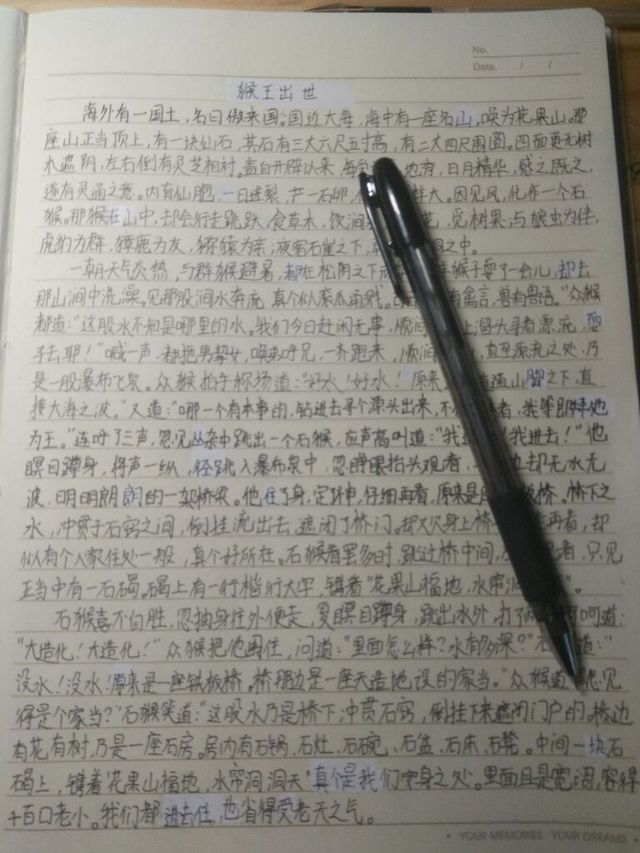 No.
Date. / /
猴王出世
海外有一国土,名曰傲来国。国近大海,海中有一座名山,唤为花果山。那
座山正当顶上,有一块仙石,其石有三丈六尺五寸高,有二丈四尺周围。四面更无树
木遮阴,左右倒有芝兰相衬。盖自开辟以来,每受 地秀,日月精华,感之既久,
遂有灵通之意。内育仙胞,一日迸裂,产一石卵, 样大。因见风,化作一个石
猴。那猴在山中,却会行走跳跃,食草木,饮涧 ,觅树果;与狼虫为伴,
虎豹为群,獐鹿为友,猕猿为亲;夜宿石崖之下, 之中。
一朝天气炎热,与群猴避暑,都在松阴之下 猴子耍了一会儿,却去
那山涧中洗澡。见那股涧水奔流,真个似滚瓜涌溅。 有禽言,兽有兽语。”众猴
都道:“这股水不知是哪里的水。我们今日赶闲无事,顺涧 上溜头寻看源流,耍
子去耶!”喊一声,都拖男挈女,唤弟呼兄,一齐跑来,顺涧 ,直至源流之处,乃
是一股瀑布飞泉。众猴拍手称扬道:“好水!好水!原来 通山脚之下,直
接大海之波。”又道:“哪一个有本事的,钻进去寻个源头出来,不 者,我等即拜他
为王。”连呼了三声,忽见丛杂中跳出一个石猴,应声高叫道:“我 !我进去!”他
瞑目蹲身,将身一纵,径跳入瀑布泉中,忽睁眼抬头观看, 却无水无
波,明明朗朗的一架桥梁。他住了身,定了神,仔细再看,原来是 板桥。桥下之
水,冲贯于石窍之间,倒挂流出去,遮闭了桥门。却又欠身上桥 再看,却
似有个人家住处一般,真个好所在。石猴看罢多时,跳过桥中间, 看,只见
正当中有一石碣。碣上有一行楷书大字,镌着“花果山福地,水帘洞 ”。
石猴喜不自胜,忽抽身往外便走,复瞑目蹲身,跳出水外,打 呵呵道:
“大造化!大造化!”众猴把他围住,问道:“里面怎么样?水有多深?”石 道:“
没水!没水!原来是一座铁板桥。桥那边是一座天造地设的家当。”众猴道 见
得是个家当?”石猴笑道:“这股水乃是桥下,冲贯石窍,倒挂下来遮闭门户的。桥边
有花有树,乃是一座石房。房内有石锅、石灶、石碗、石盆、石床、石凳。中间一块石
碣上,镌着‘花果山福地,水帘洞洞天’真个是我们安身之处。里面且是宽阔,容得
千百口老小。我们都进去住,也省得受老天之气。
YOUR MEMORIES YOUR DREAMS